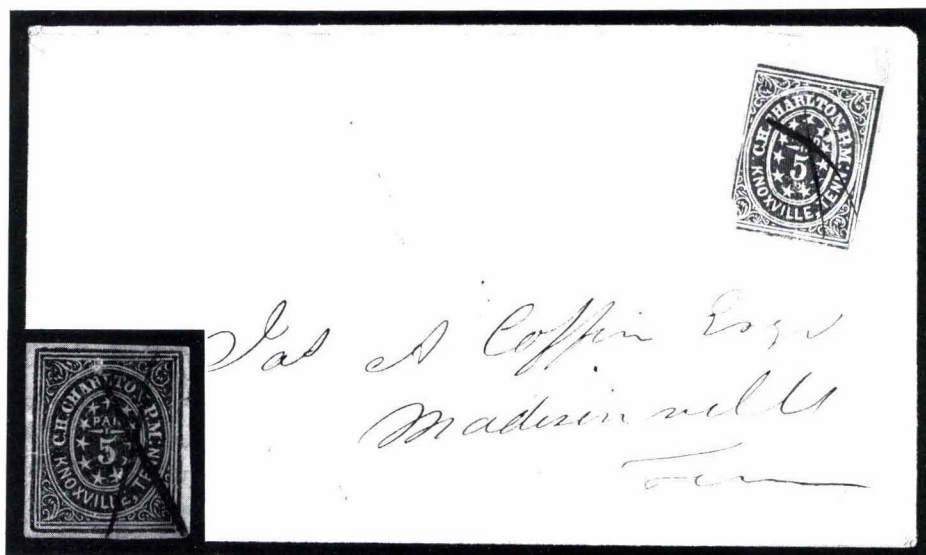 C.H. CHARLTON, P.M.
5
KNOXVILLE, TENN.
Jas A Coffin Esqr
Madisonville
Tenn
C.H. CHARLTON, P.M.
PAID
5
KNOXVILLE, TENN.